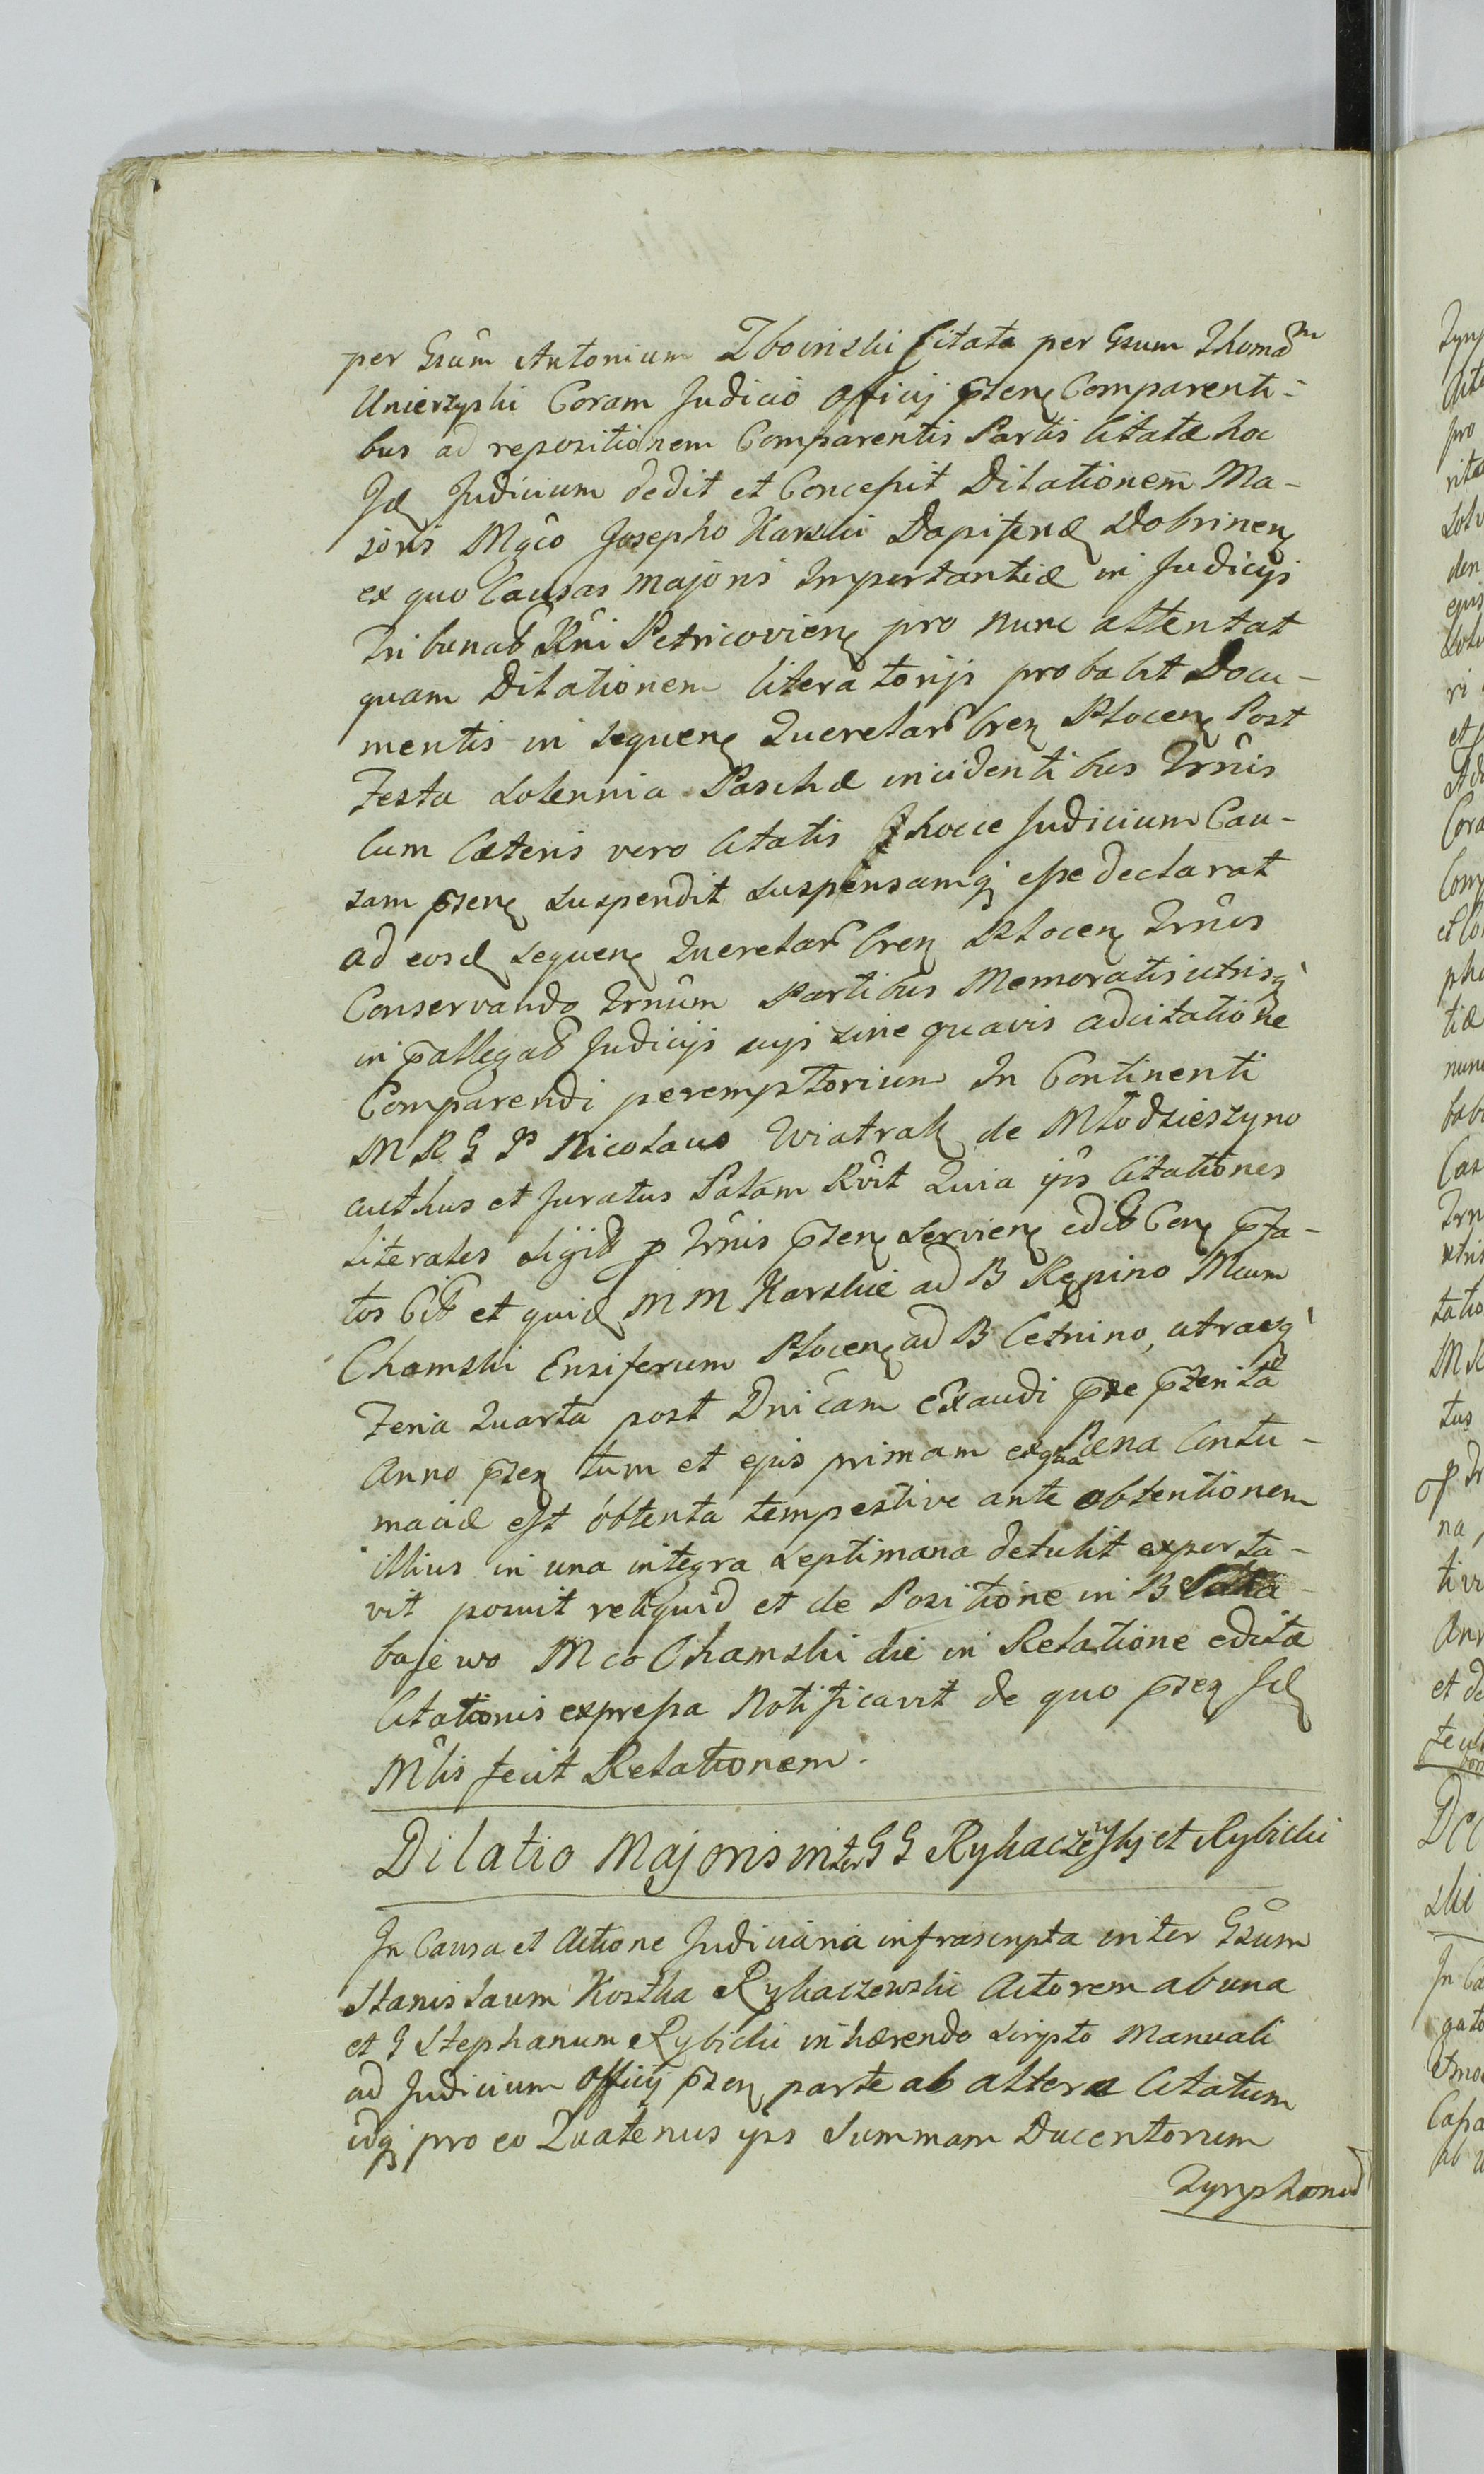 per Gsum Antonium Zboinski Citata per Gsum Thomam
Unierzyski Coram Judicio Officij pnten Comparenti-
bus ad repositionem Comparentis Partis Citatæ hoc
Jd Judicium dedit et Concessit Dilationem Ma-
joris Mgco Josepho Karski Dapifero Dobrinen
ex quo Causas majoris Importantiæ in Judicijs
Tribunal Rni Petricovien pro nunc attentat
quam Dilationem literatorijs probabit Docu-
mentis in sequen Querelar Cren Plocen Post
Festa Solennia Paschæ incidentibus Trnis
Cum Cæteris vero Citatis hocce Judicium Cau-
sam pnten suspendit suspensamq esse declarat
ad eosd sequen Querelar Cren Plocen Trnos
Conservando Trnum Partibus Memoratis utrisq
in pallegat Judicijs suis sine quavis adcitatione
Comparendi peremptorium In Continenti
M R G P Nicolaus Wiatrak de Młodzieszyno
authus et Juratus Palam Rvit Quia ips Citationes
literales Sigil p Trnis pnten servien edit Con pfa-
tos Cit et quid M M Karskie ad B Rępino Mcum
Chamski Ensiferum Plocen ad B Cetnino, utraq
Feria Quarta post Dnicam Exaudi pxe pteritâ
Anno pnten tum et ejus primam ex qua Pæna Contu-
maciæ est obtenta tempestive ante obtentionem
illius in una integra Septimana detulit exporta-
vit posuit reliquid et de Positione in B
bajewo Mco Chamski die in Relatione editæ
Citationis expressa Notificavit de quo pnten Jd
Mlis fecit Relationem.
Dilatio Majoris inter G G Rykaczewskj et Rybicki
In Causa et Actione Judiciaria infrascripta inter Gsum
Stanislaum Kostka Rykaczewski Actorem ab una
et G Stephanum Rybicki inhærendo Scripto Manuali
ad Judicium Officij pnten parte ab altera Citatum
idq pro eo Quatenus ips Summam Ducentorum
Tynphonu